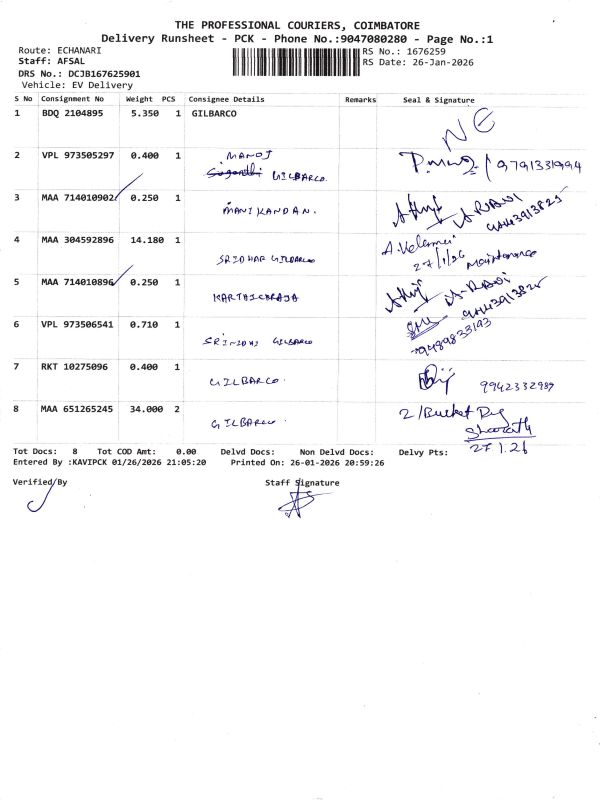 THE PROFESSIONAL COURIERS, COIMBATORE
Delivery Runsheet - PCK - Phone No.:9047080280 - Page No.:1
Route: ECHANARI
Staff: AFSAL
DRS No.: DCJB167625901
Vehicle: EV Delivery
RS No.: 1676259
RS Date: 26-Jan-2026
S No Consignment No Weight PCS Consignee Details Remarks Seal & Signature
1 BDQ 2104895 5.350 1 GILBARCO NE
2 VPL 973505297 0.400 1 MANOJ
GILBARCO. 9791331994
3 MAA 714010902 0.250 1 MANIKANDAN. A RAVI
4 MAA 304592896 14.180 1 SRIDHAR GILBARCO
27/1/26 Maintenance
5 MAA 714010896 0.250 1 KARTHICKRAJA A-RAVI
6 VPL 973506541 0.710 1 SRINIDHI GILBARCO
7 RKT 10275096 0.400 1 GILBARCO. 9942332989
8 MAA 651265245 34.000 2 GILBARCO. 2/Bucket
Sharath
27.1.26
Tot Docs: 8 Tot COD Amt: 0.00 Delvd Docs: Non Delvd Docs: Delvy Pts:
Entered By :KAVIPCK 01/26/2026 21:05:20 Printed On: 26-01-2026 20:59:26
Verified By Staff Signature